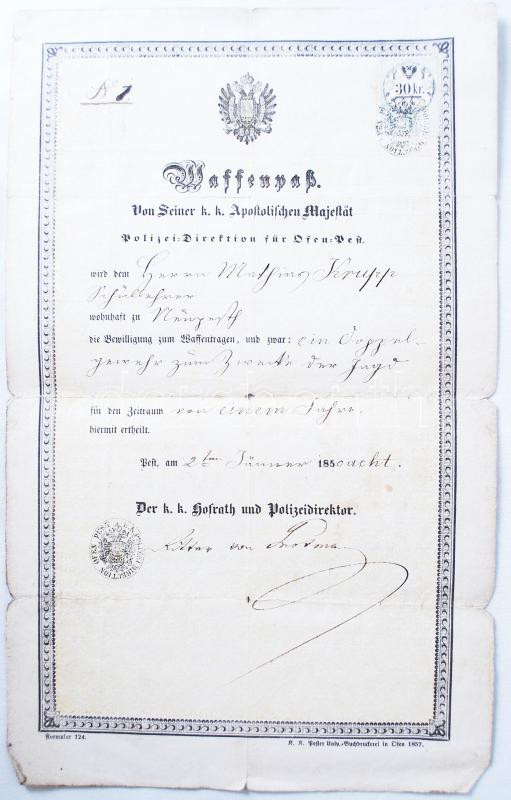 No 1.
30 kr.
Waffenpaß.
Von Seiner k. k. Apostolischen Majestät
Polizei=Direktion für Ofen=Pest.
wird dem Herrn Mathias Krupp
Schullehrer
wohnhaft zu Neupesth
die Bewilligung zum Waffentragen, und zwar: ein Doppel-
gewehr zum Zwecke der Jagd
für den Zeitraum von einem Jahre.
hiermit ertheilt.
Pest, am 2ten Jänner 1850acht.
Der k. k. Hofrath und Polizeidirektor.
Ritter von
Formular 124.
K. K. Pester Univ.-Buchdruckerei in Ofen 1857.